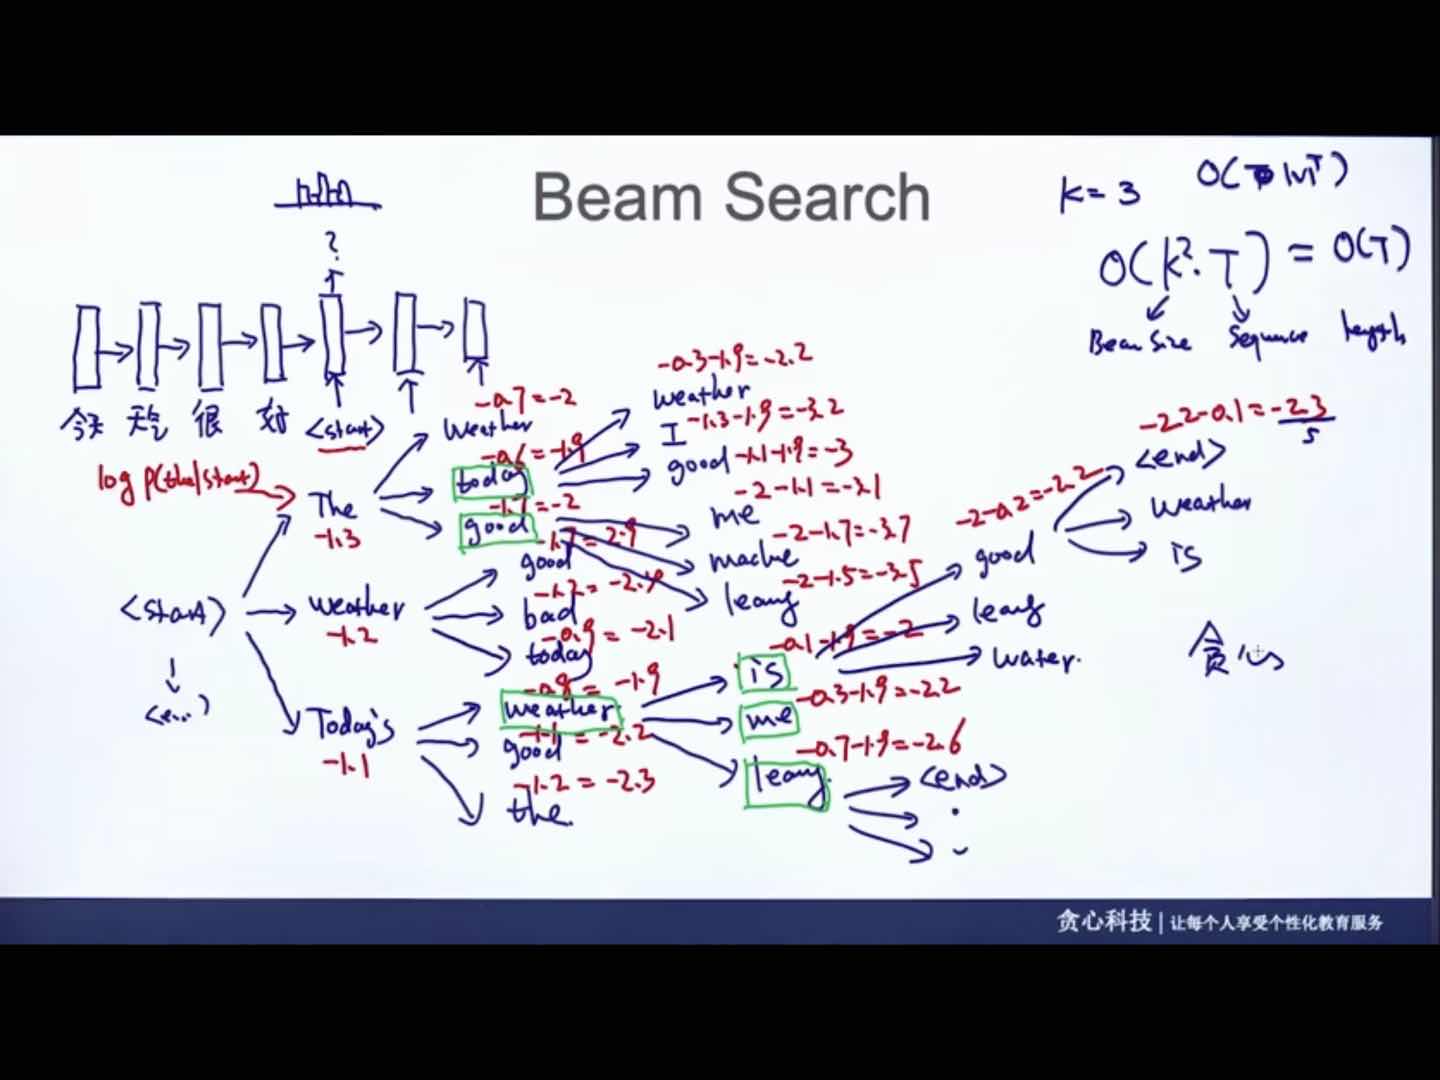 Beam Search
K = 3
O(T |V|^T)
O(k². T) = O(T)
Beam Size
Sequence
length
?
今天 天气 很 好 <start>
log p(the|start)
<start>
The
-1.3
weather
-1.2
Today's
-1.1
-0.7 = -2
weather
-0.6 = -1.9
today
-1.7 = -2
good
-1.7 = 2.9
good
-1.2 = -2.4
bad
-0.9 = -2.1
today
-0.8 = -1.9
weather
-1.1 = -2.2
good
-1.2 = -2.3
the.
-0.3-1.9 = -2.2
weather
-1.3-1.9 = -3.2
I
good -1.1-1.9 = -3
-2-1.1 = -3.1
me
-2-1.7 = -3.7
-2-1.5 = -3.5
-0.1-1.9 = -2
is
-0.3-1.9 = -2.2
me
-0.7-1.9 = -2.6
-2-0.2 = -2.2
good
water.
-2.2-0.1 = -2.3
5
<end>
weather
is
<end>
贪心
贪心科技 | 让每个人享受个性化教育服务